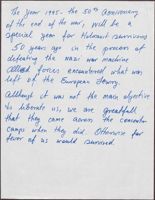 The year 1995 - the 50th anniversary
of the end of the war, will be a
special year for Holocaust survivors
50 years ago in the process of
defeating the Nazi war machine
Allied forces encountered what was
left of the European Jewry.
Although it was not the main objective
to liberate us, we are greatfull
that they came across the concentr.
camps when they did. Otherwise far
fewer of us would survived.